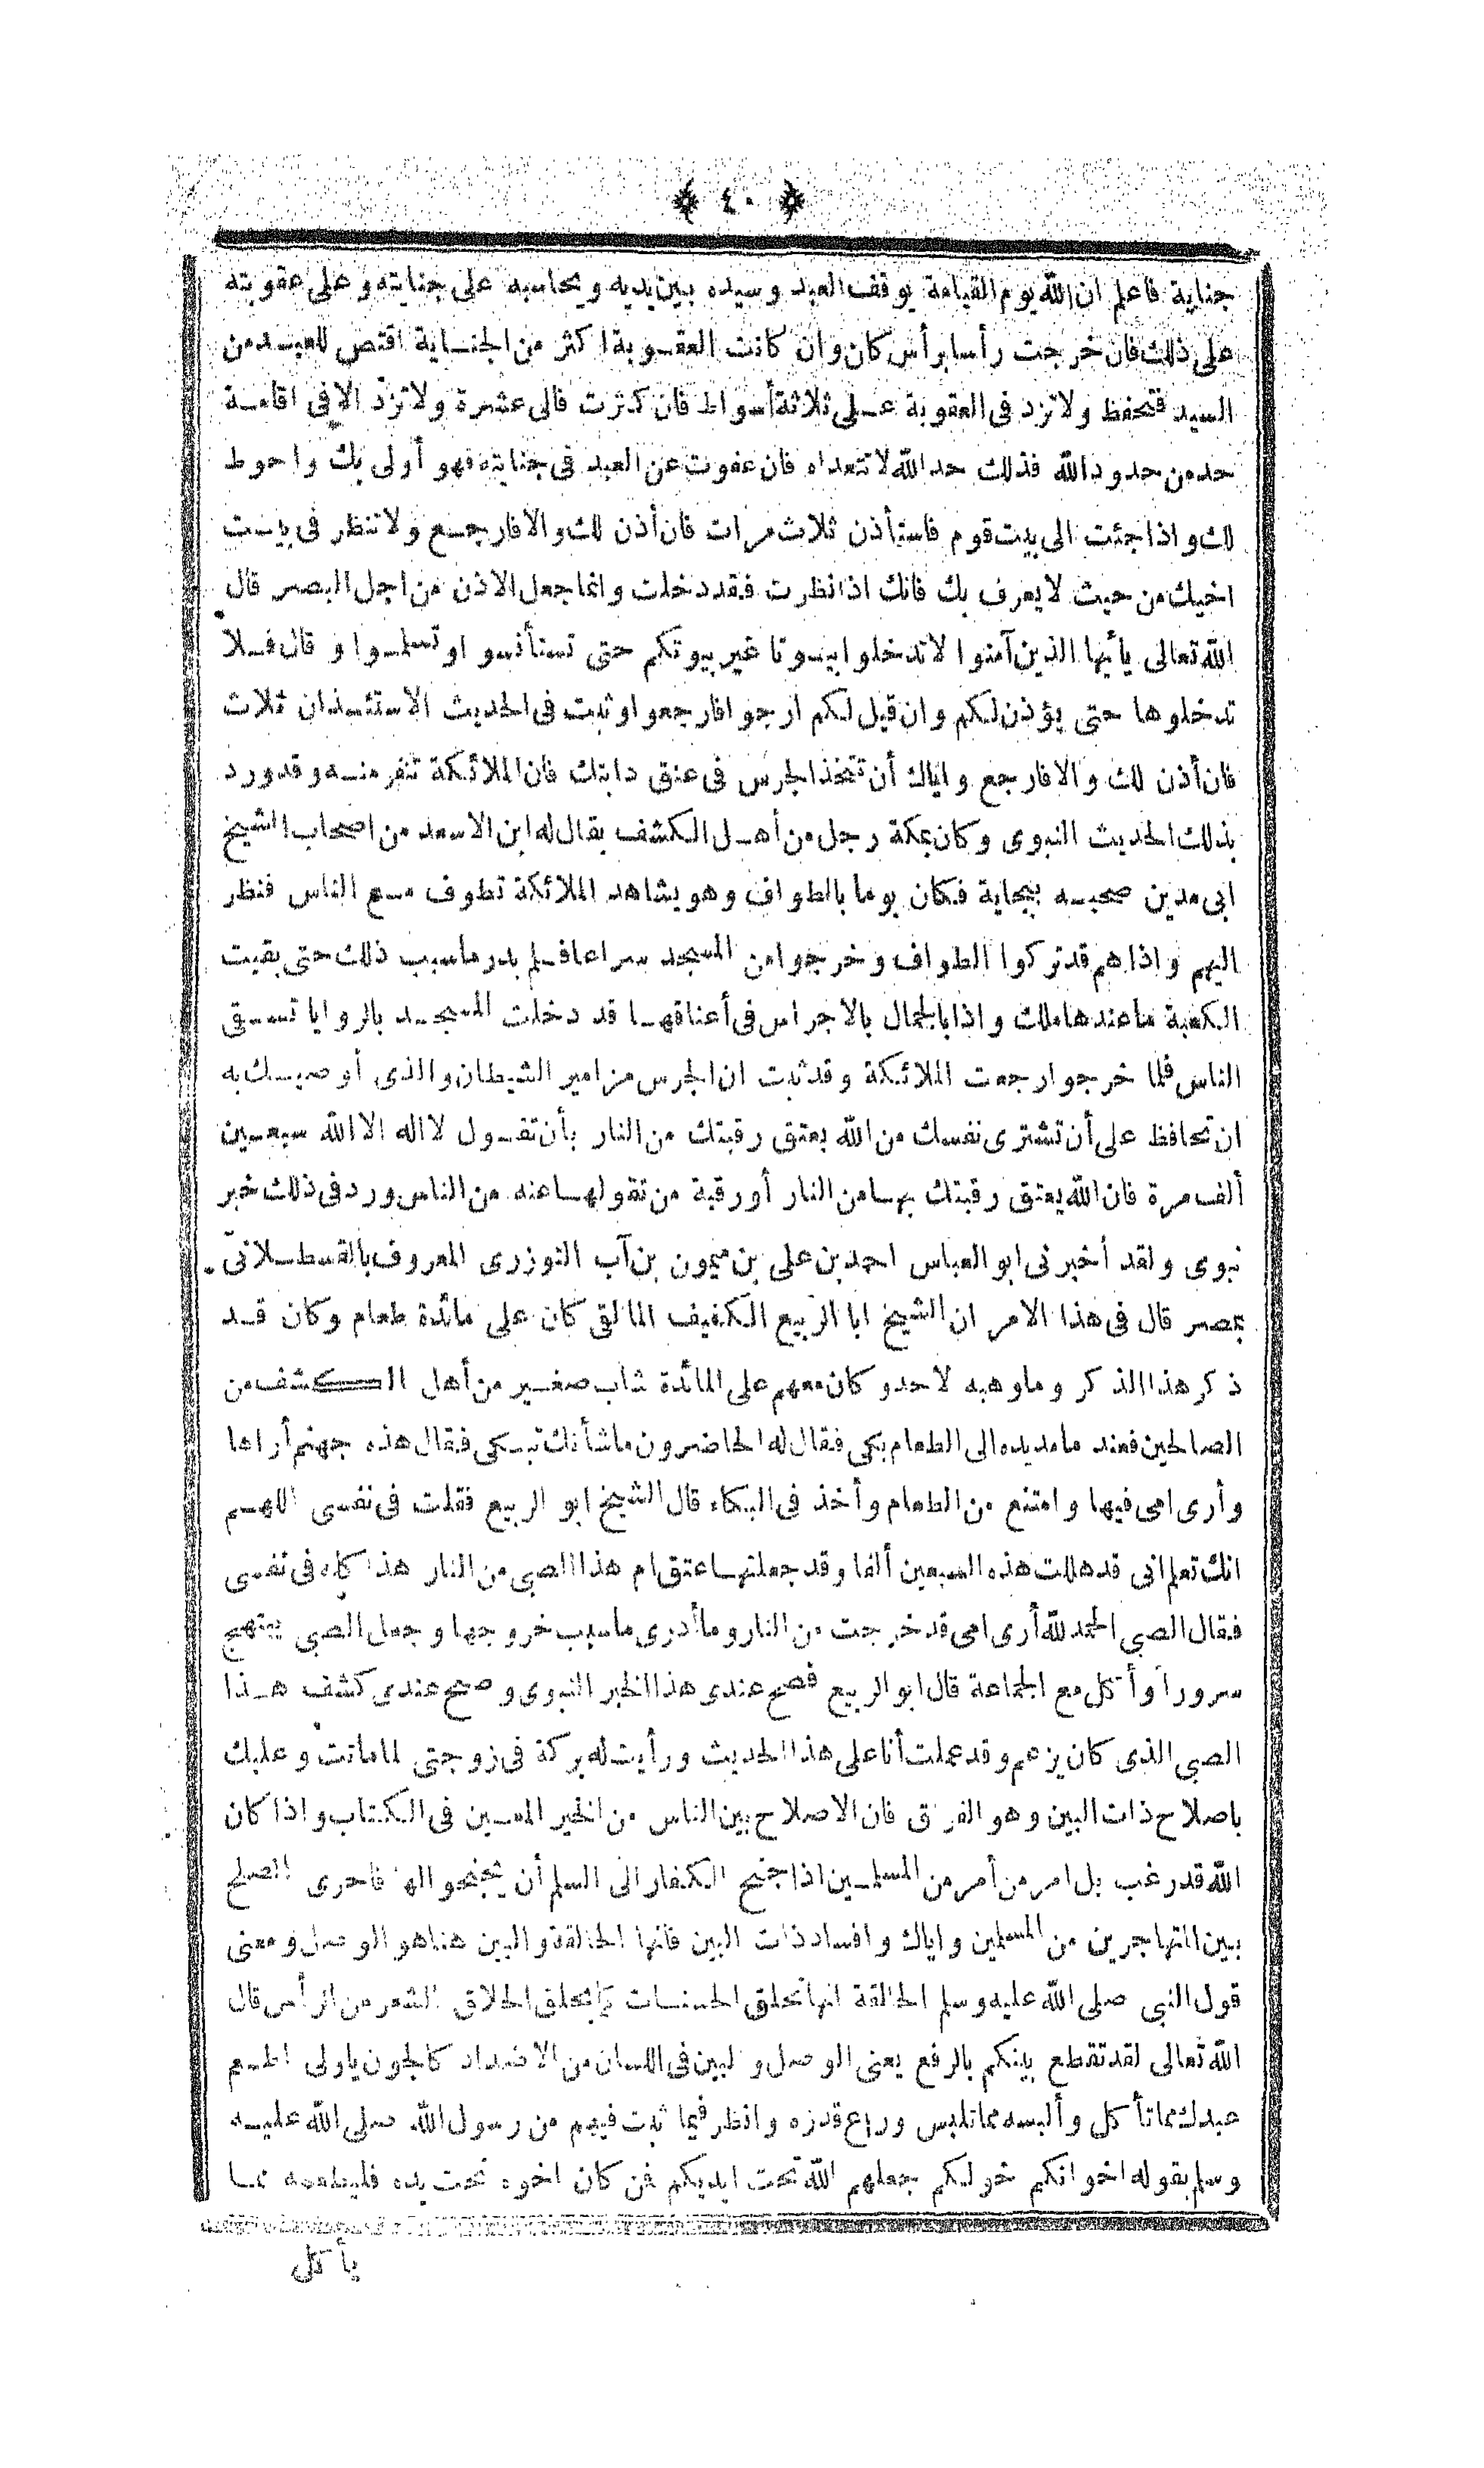 ﴿ ٤٠ ﴾
جناية فاعلم ان الله يوم القيامة يوقف العبد وسيده بين يديه ويحاسبه على جنايته وعلى عقوبته
على ذلك فان خرجت رأسا برأس كان وان كانت العقوبة اكثر من الجناية اقتص للعبد من
السيد فتحفظ ولا تزد فى العقوبة على ثلاثة أسواط فان كثرت فالى عشرة ولا تزد الا فى اقامة
حد من حدود الله فذلك حد الله لا تتعداه فان عفوت عن العبد فى جنايته فهو أولى بك واحوط
لك واذا جئت الى بيت قوم فاستأذن ثلاث مرات فان أذن لك والا فارجع ولا تنظر فى بيت
اخيك من حيث لا يعرف بك فانك اذا نظرت فقد دخلت وانما جعل الاذن من اجل البصر قال
الله تعالى يأيها الذين آمنوا لا تدخلوا بيوتا غير بيوتكم حتى تستأنسو او تسلموا وقال فلا
تدخلوها حتى يؤذن لكم وان قيل لكم ارجوا فارجعوا وثبت فى الحديث الاستئذان ثلاث
فان أذن لك والا فارجع واياك أن تتخذ الجرس فى عنق دابتك فان الملائكة تنفر منه وقد ورد
بذلك الحديث النبوى وكان بمكة رجل من أهل الكشف يقال له ابن الاسعد من اصحاب الشيخ
ابى مدين صحبه ببجاية فكان يوما بالطواف وهو يشاهد الملائكة تطوف مع الناس فنظر
اليهم واذا هم قد تركوا الطواف وخرجوا من المسجد سراعا فلم يدر ما سبب ذلك حتى بقيت
الكعبة ما عندها ملك واذا بالجمال بالاجراس فى أعناقها قد دخلت المسجد بالروايا تسقى
الناس فلما خرجوا رجعت الملائكة وقد ثبت ان الجرس مزامير الشيطان والذى أوصيك به
ان تحافظ على أن تشترى نفسك من الله بعتق رقبتك من النار بأن تقول لا اله الا الله سبعين
ألف مرة فان الله يعتق رقبتك بها من النار أو رقبة من تقولها عنه من الناس ورد فى ذلك خبر
نبوى ولقد أخبرنى ابو العباس احمد بن على بن ميمون بن آب التوزرى المعروف بالقسطلانى
بمصر قال فى هذا الامر ان الشيخ ابا الربيع الكفيف المالقى كان على مائدة طعام وكان قد
ذكر هذا الذكر وما وهبه لاحد وكان معهم على المائدة شاب صغير من أهل الكشف من
الصالحين فعند ما مد يده الى الطعام بكى فقال له الحاضرون ما شأنك تبكى فقال هذه جهنم أراها
وأرى امى فيها وامتنع من الطعام وأخذ فى البكاء قال الشيخ ابو الربيع فقلت فى نفسى اللهم
انك تعلم انى قد هللت هذه السبعين ألفا وقد جعلتها عتق ام هذا الصبى من النار هذا كله فى نفسى
فقال الصبى الحمد لله أرى امى قد خرجت من النار وما أدرى ما سبب خروجها وجعل الصبى يبتهج
سرورا وأكل مع الجماعة قال ابو الربيع فصح عندى هذا الخبر النبوى وصح عندى كشف هذا
الصبى الذى كان يزعم وقد عملت أنا على هذا الحديث ورأيت له بركة فى زوجتى لما ماتت وعليك
باصلاح ذات البين وهو الفراق فان الاصلاح بين الناس من الخير المعين فى الكتاب واذا كان
الله قد رغب بل امر من أمر من المسلمين اذا جنح الكفار الى السلم أن يجنحوا لها فاحرى الصلح
بين المتهاجرين من المسلمين واياك وافساد ذات البين فانها الحالقة والبين هنا هو الوصل ومعنى
قول النبى صلى الله عليه وسلم الحالقة انها تحلق الحسنات كما يحلق الحلاق الشعر من الرأس قال
الله تعالى لقد تقطع بينكم بالرفع يعنى الوصل والبين فى اللسان من الاضداد كالجون يا ولى اطعم
عبدك مما تأكل وألبسه مما تلبس وراع قدره وانظر فيما ثبت فيهم من رسول الله صلى الله عليه
وسلم بقوله اخوانكم خولكم جعلهم الله تحت ايديكم فمن كان اخوه تحت يده فليطعمه مما
يأكل